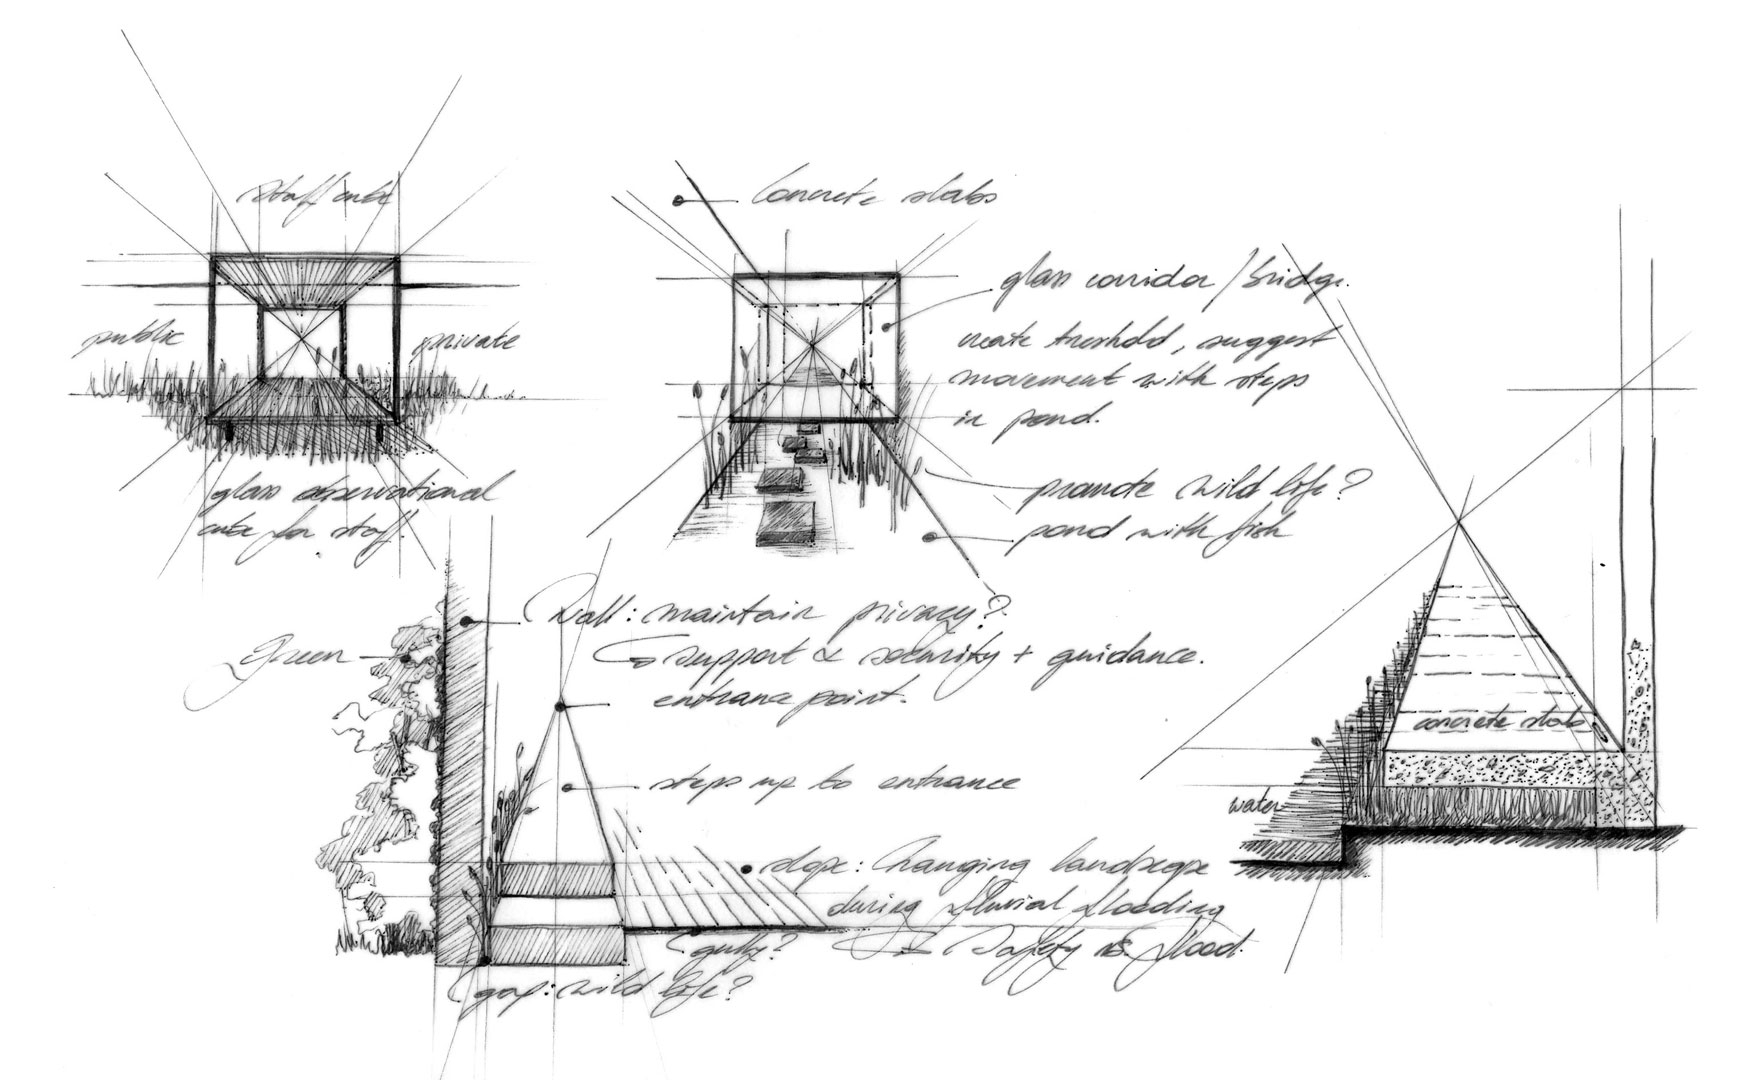 staff cube
public
private
glass observational
cube for staff.
Concrete slabs
glass corridor / bridge.
create treshold, suggest
movement with steps
in pond.
promote wild life?
pond with fish
Wall: maintain privacy?
support & security + guidance.
entrance point.
Green
steps up to entrance
slope: Changing landscape
during fluvial flooding
Safety vs. flood.
(gully?
(gap: wild life?
concrete slabs
water